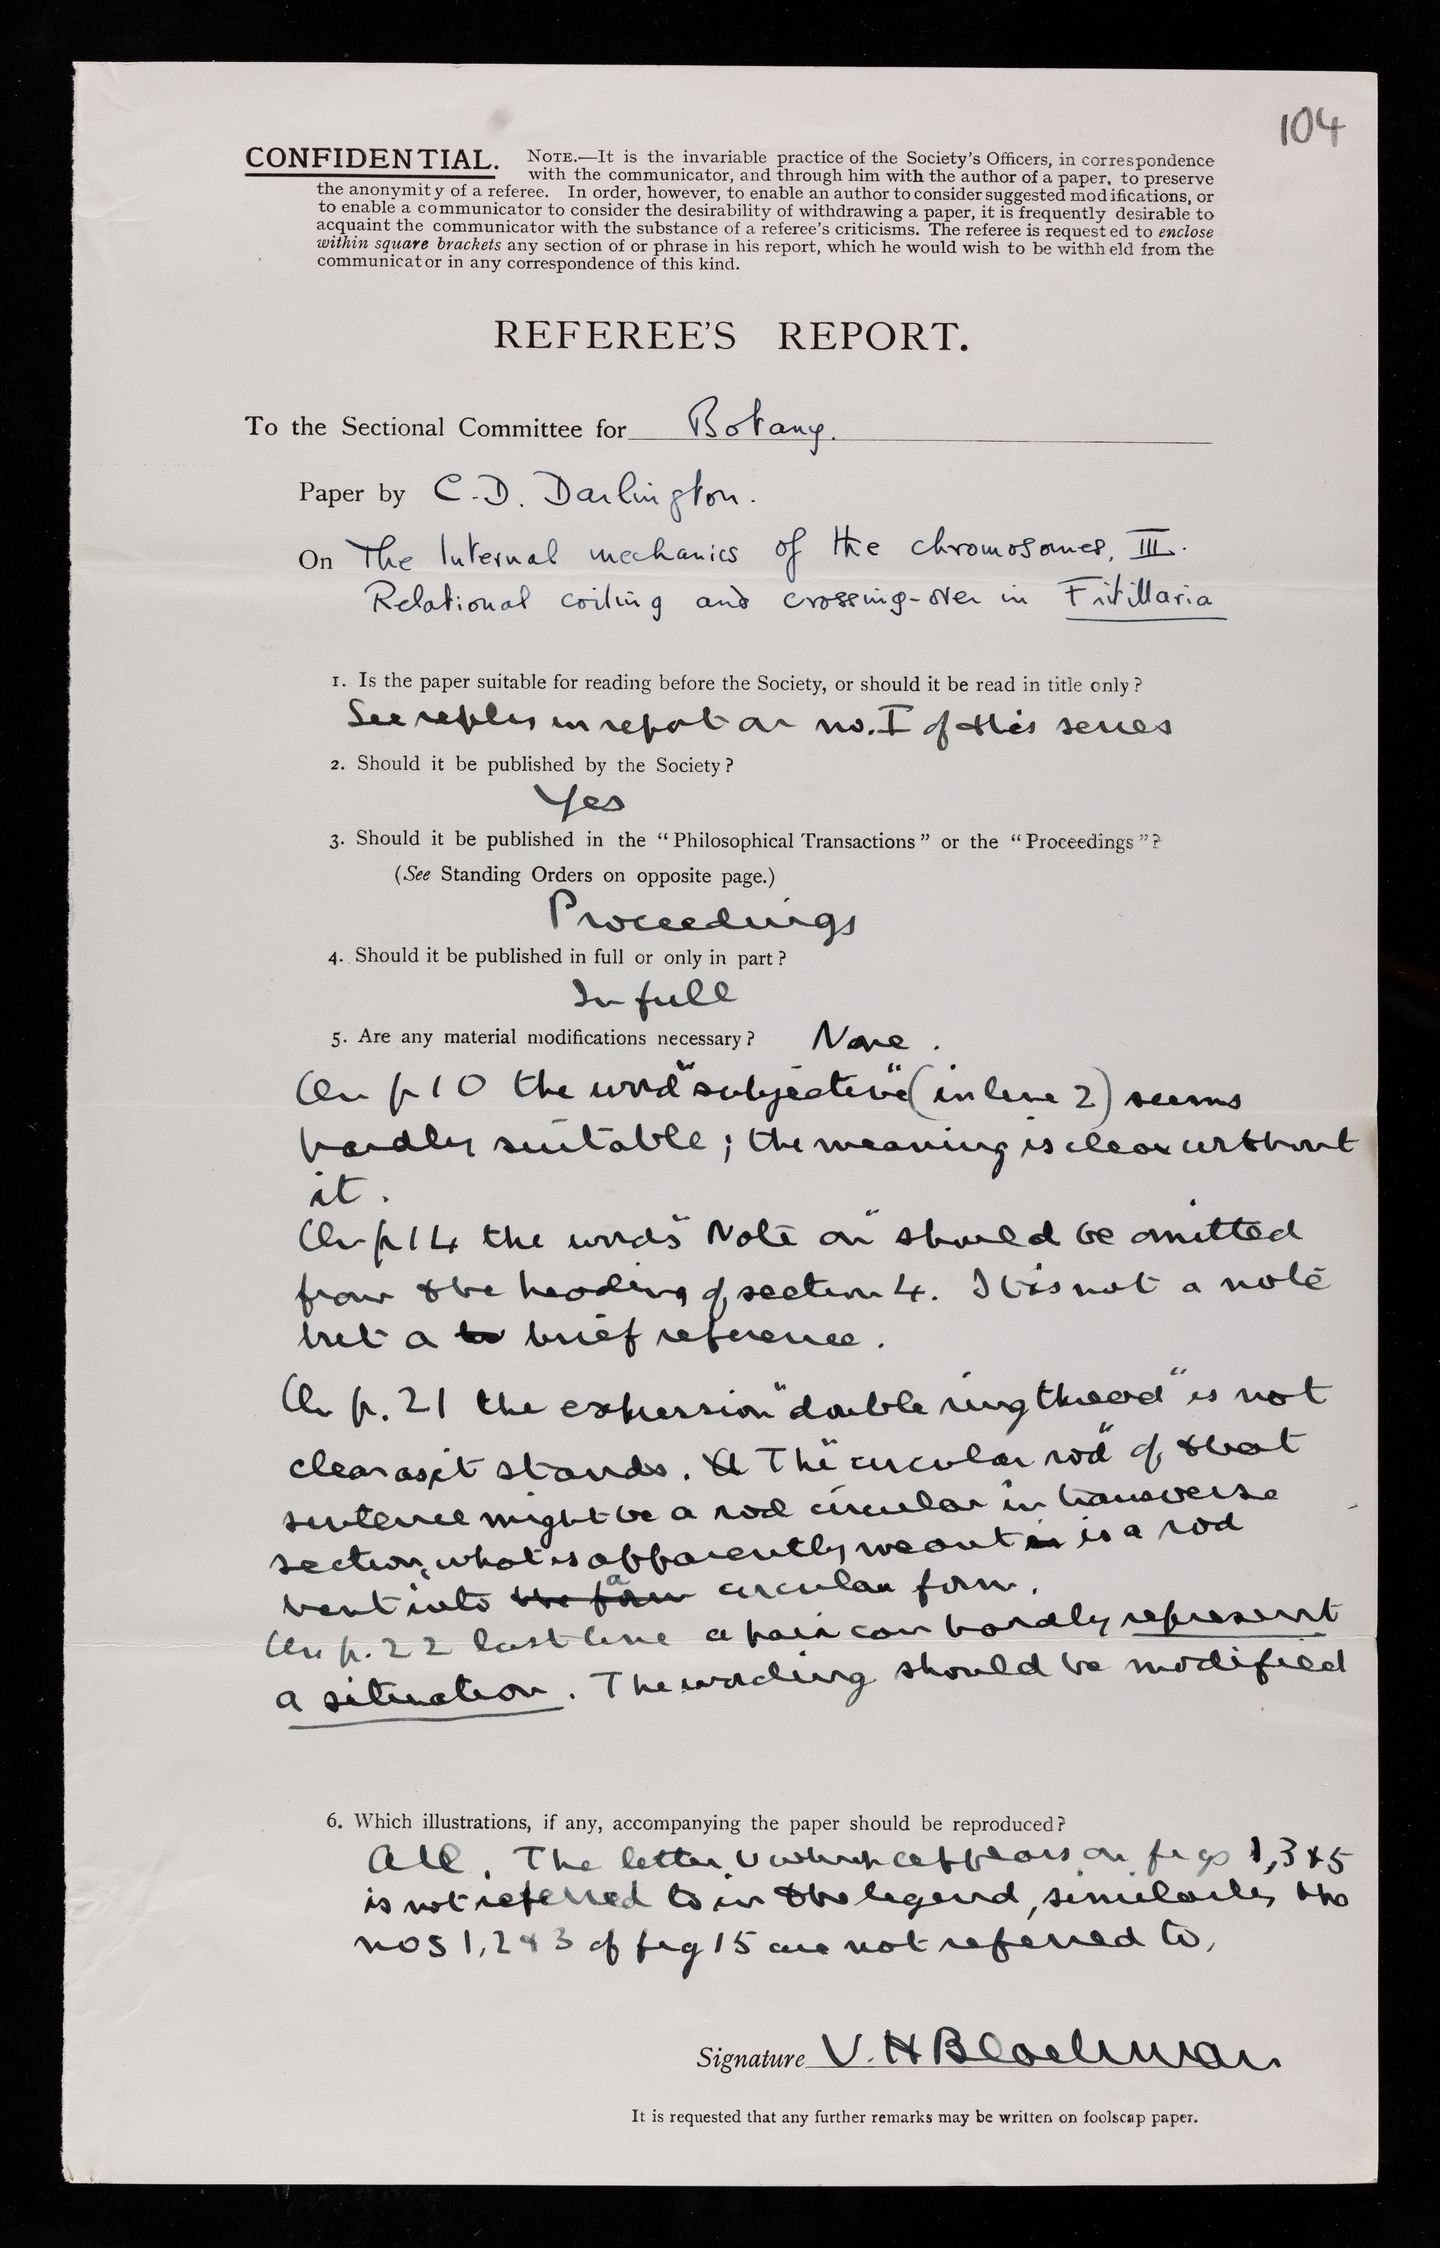 104
CONFIDENTIAL. NOTE.—It is the invariable practice of the Society's Officers, in correspondence
with the communicator, and through him with the author of a paper, to preserve
the anonymity of a referee. In order, however, to enable an author to consider suggested modifications, or
to enable a communicator to consider the desirability of withdrawing a paper, it is frequently desirable to
acquaint the communicator with the substance of a referee's criticisms. The referee is requested to enclose
within square brackets any section of or phrase in his report, which he would wish to be withheld from the
communicator in any correspondence of this kind.
REFEREE'S REPORT.
To the Sectional Committee for Botany.
Paper by C.D. Darlington.
On The Internal mechanics of the chromosomes, III.
Relational coiling and crossing-over in Fritillaria
1. Is the paper suitable for reading before the Society, or should it be read in title only?
See replies in report on no. I of this series
2. Should it be published by the Society?
Yes
3. Should it be published in the "Philosophical Transactions" or the "Proceedings"?
(See Standing Orders on opposite page.)
Proceedings
4. Should it be published in full or only in part?
In full
5. Are any material modifications necessary? None.
On p 10 the word "subjective" (in line 2) seems
hardly suitable; the meaning is clear without
it.
On p 14 the words "Note on" should be omitted
from the heading of section 4. It is not a note
but a brief reference.
On p. 21 the expression "double ring thread" is not
clear as it stands. The "circular rod" of that
sentence might be a rod circular in transverse
section; what is apparently meant is a rod
bent into a circular form.
On p. 22 last line a pair can hardly represent
a situation. The wording should be modified
6. Which illustrations, if any, accompanying the paper should be reproduced?
All. The letter U which appears on figs 1, 3 & 5
is not referred to in the legend, similarly the
nos 1, 2 & 3 of fig 15 are not referred to.
Signature V. H Blackman
It is requested that any further remarks may be written on foolscap paper.